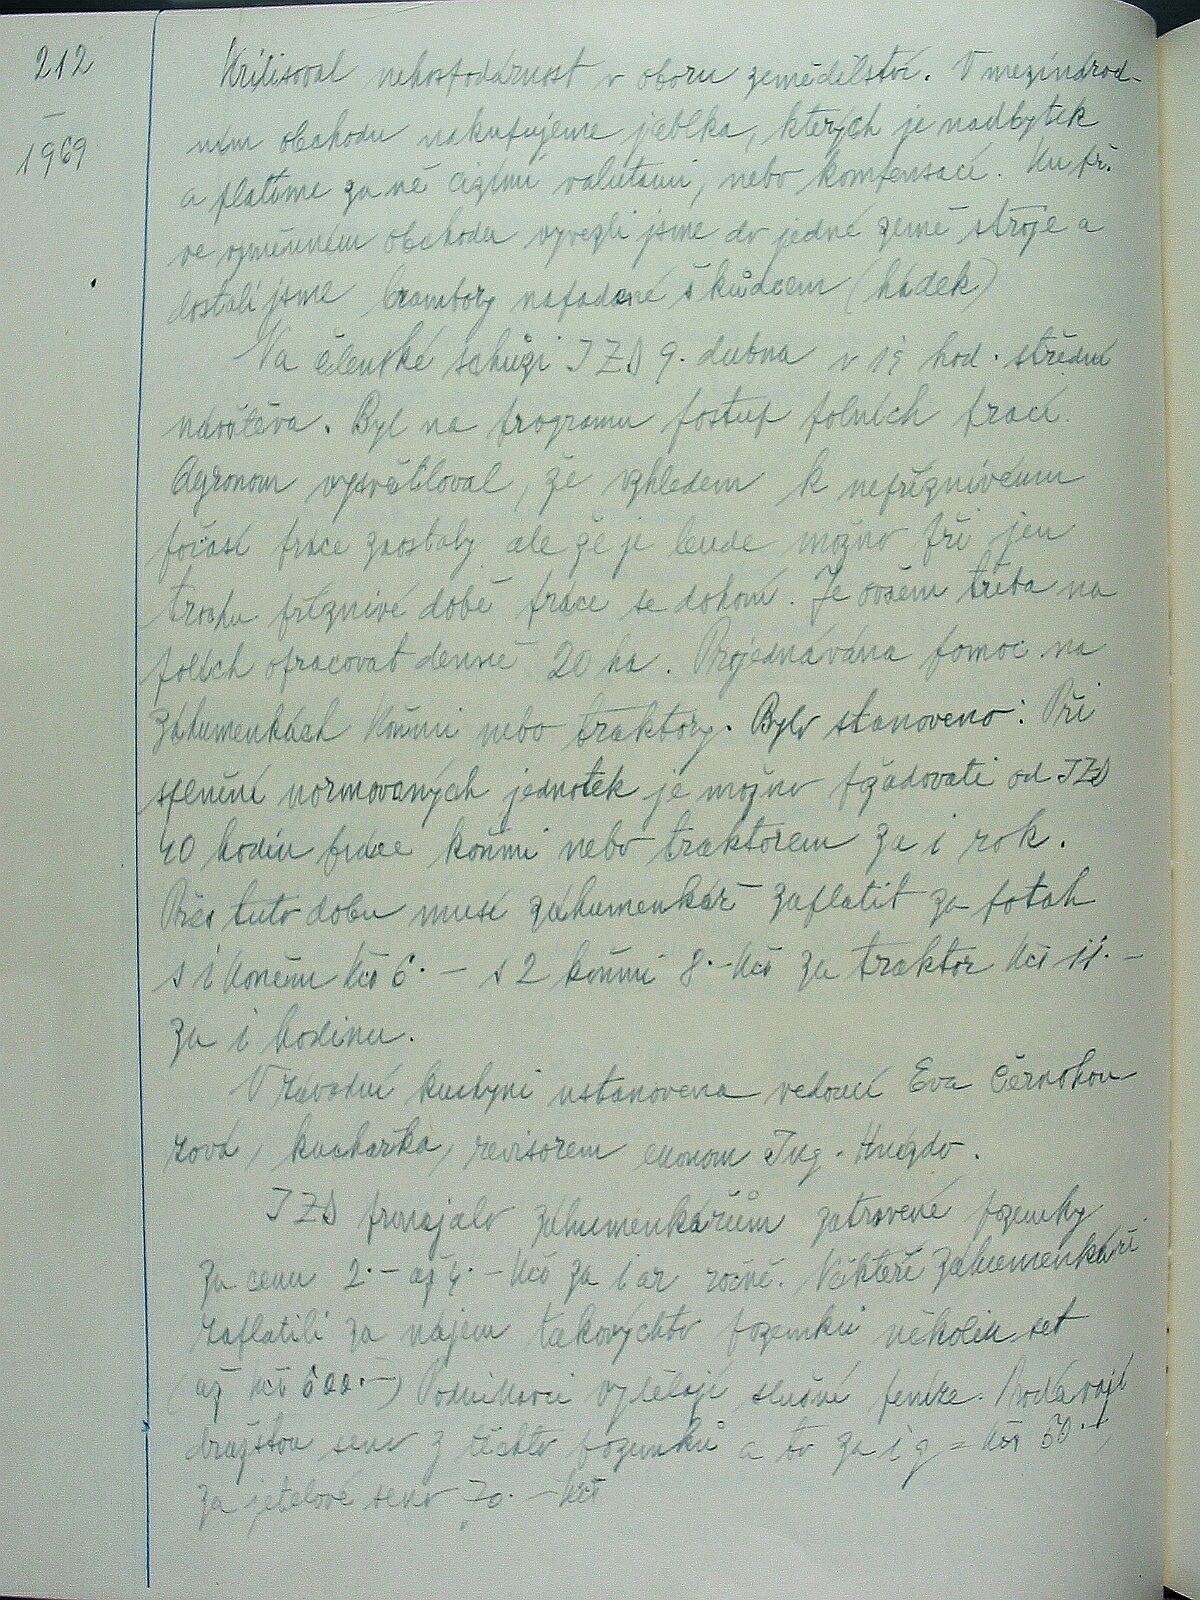 212
1969
Kritisoval nehospodárnost v oboru zemědělství. V mezinárod-
ním obchodu nakupujeme jablka, kterých je nadbytek
a platíme za ně cizími valutami, nebo kompensací. Ku př.
ve výměnném obchodu vyvezli jsme do jedné země stroje a
dostali jsme brambory napadené škůdcem (háďek)
Na členské schůzi JZD 9. dubna v 19 hod. střední
návštěva. Byl na programu postup polních prací.
Agronom vysvětloval, že vzhledem k nepříznivému
počasí práce zaostaly ale že je bude možno při jen
trochu příznivé době práce se dohoní. Je ovšem třeba na
polích opracovat denně 20 ha. Projednávána pomoc na
záhumenkách koňmi nebo traktory. Bylo stanoveno: Při
splnění normovaných jednotek je možno požadovati od JZD
40 hodin práce koňmi nebo traktorem za 1 rok.
Přes tuto dobu musí záhumenkář zaplatit za potah
s 1 koněm Kčs 6.- s 2 koňmi 8.- Kčs za traktor Kčs 11.-
za 1 hodinu.
V závodní kuchyni ustanovena vedoucí Eva Černohou-
zová, kuchařka, revisorem ekonom Ing. Hnízdo.
JZD pronajalo záhumenkářům zatravené pozemky
za cenu 2.- až 4.- Kčs za 1 ar ročně. Někteří záhumenkáři
zaplatili za nájem takovýchto pozemků několik set
(až Kčs 600.-) Podnikavci vydělají slušné peníze. Prodávají
družstvu seno z těchto pozemků a to za 1 q = Kčs 50.-,
za jetelové seno 70.- Kčs